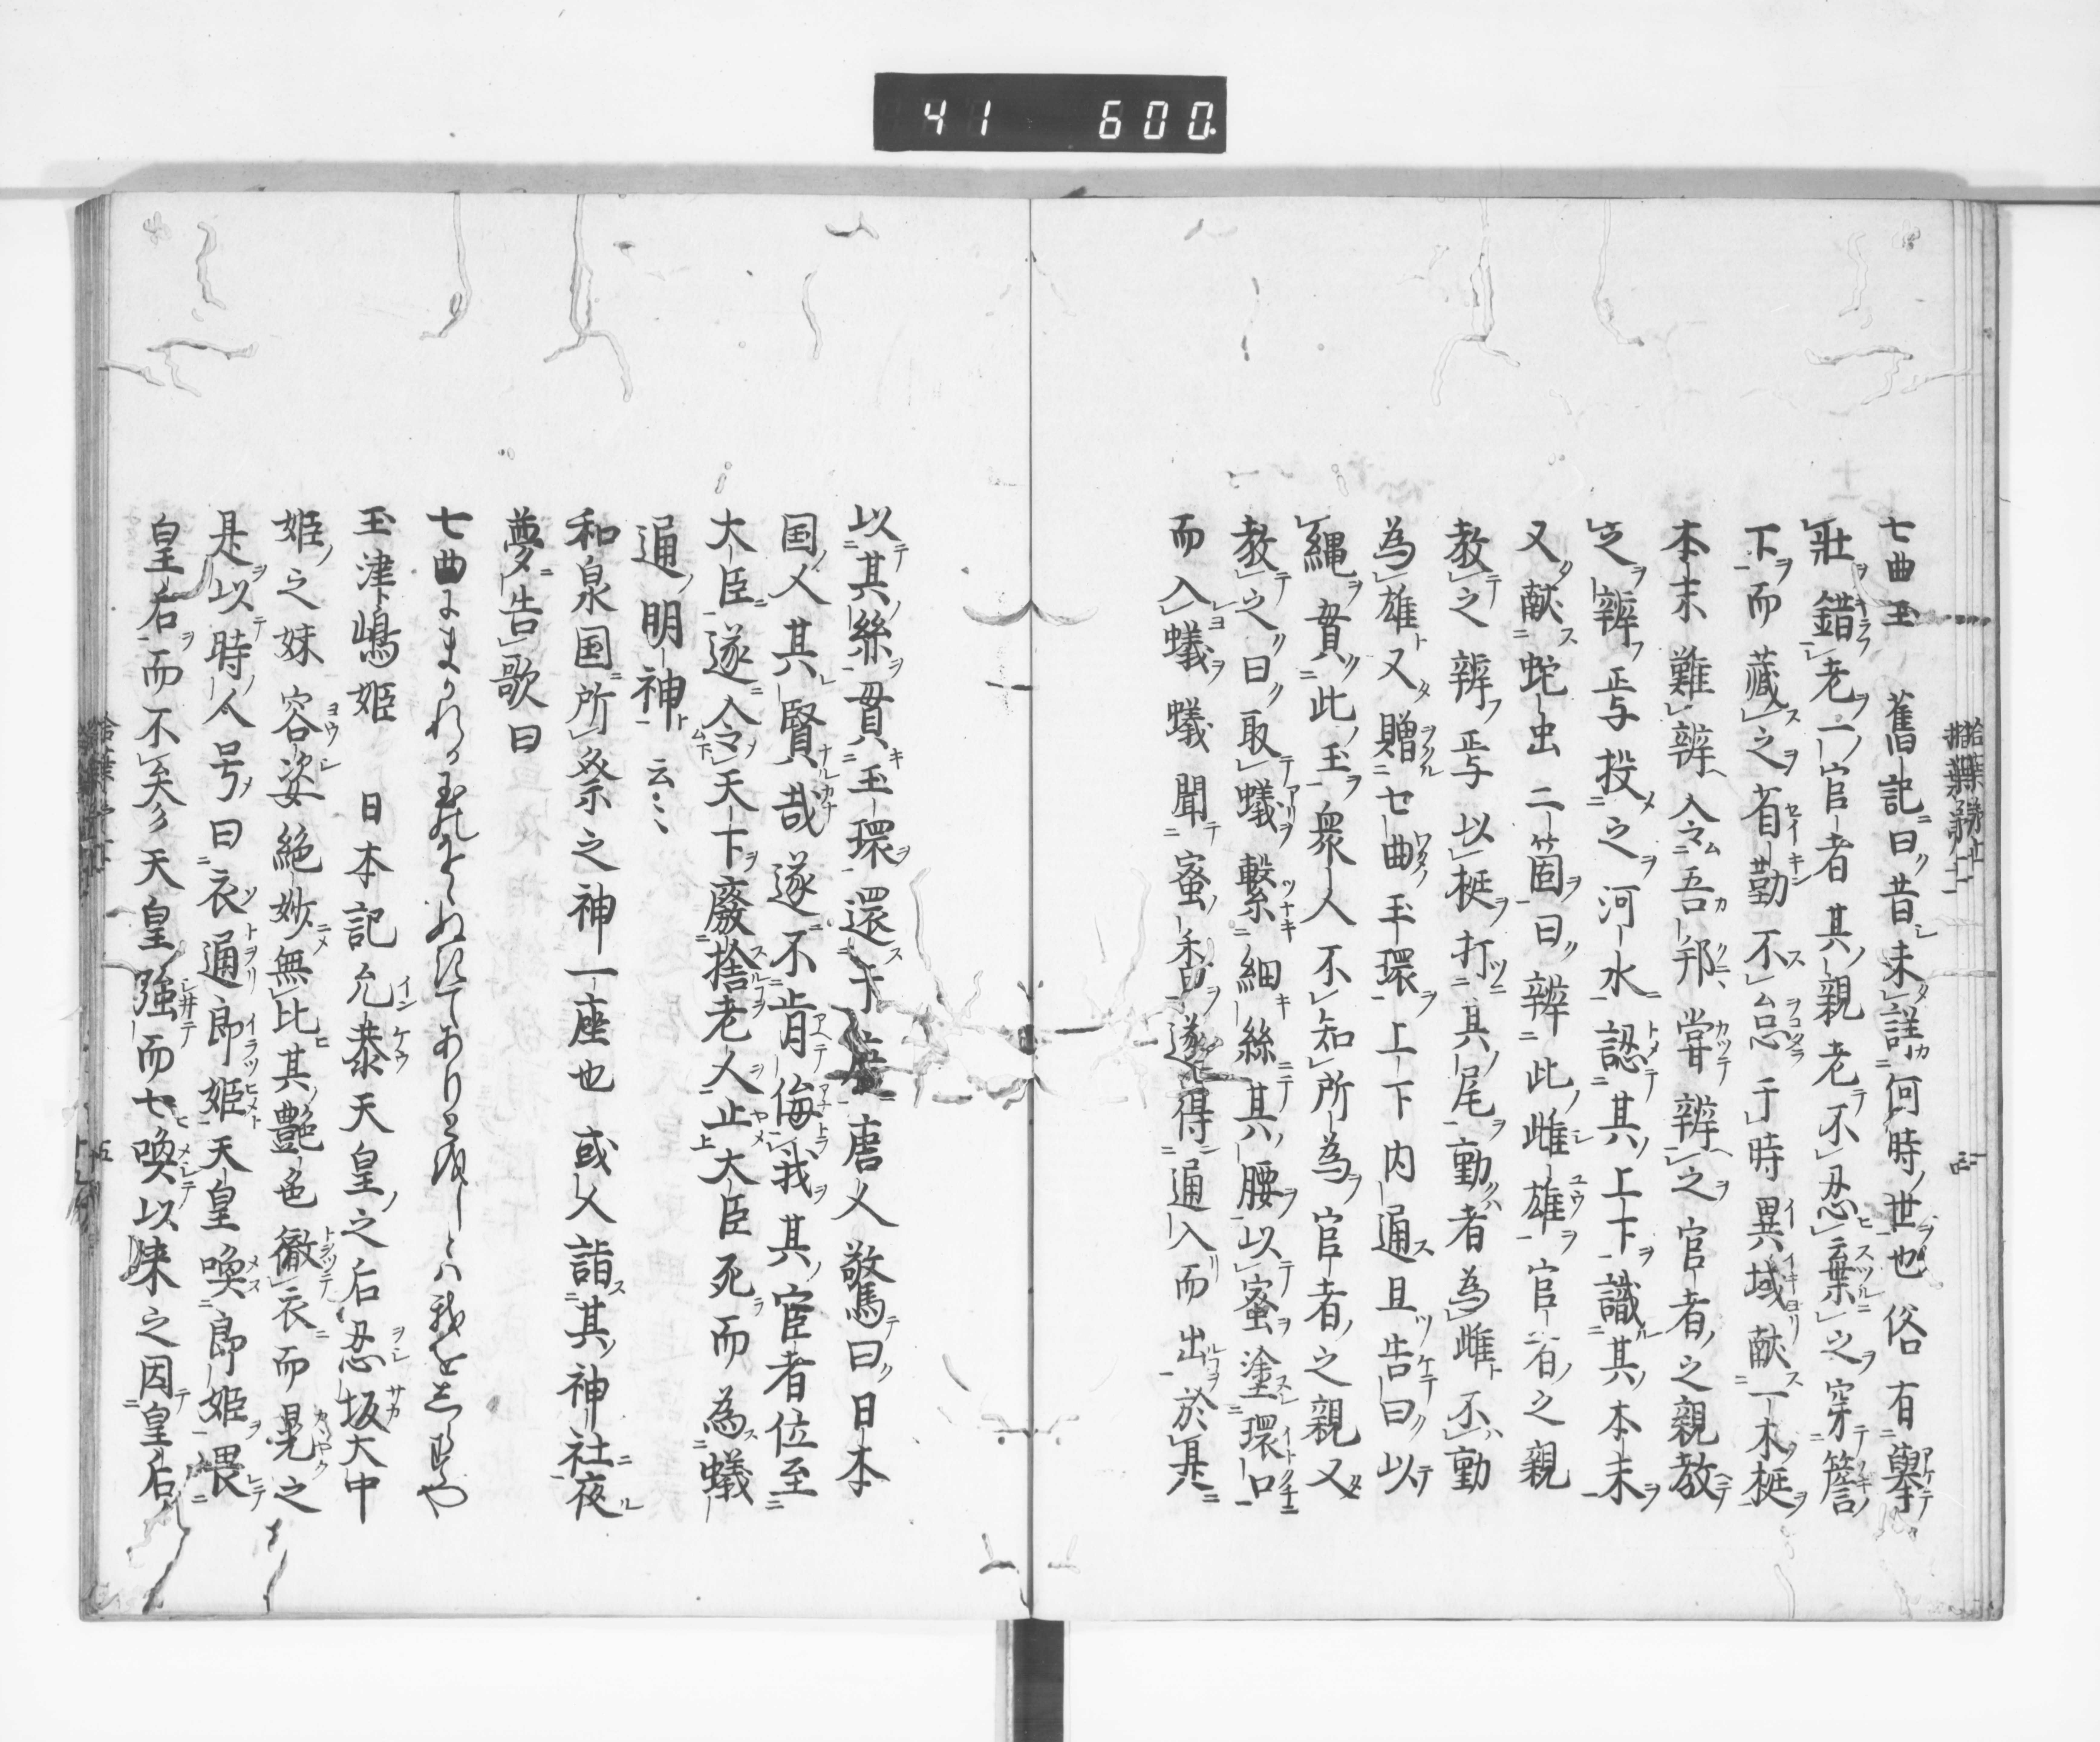 41 600
七曲玉 舊記曰昔未詳何時世也俗有擧
壯錯老一官者其親老不忍棄之穿簷
下而藏之省勤不怠于時異域献一木梃
本末難辨入令吾邦嘗辨之官者之親教
之辨與投之河水認其上下識其本末
又献蛇出二箇曰辨此雌雄官者之親
教之辨與以梃打其尾動者為雌不動
為雄又贈七曲玉環上下内通且告曰以
縄貫此玉衆人不知所為官者之親又
教之曰取蟻繋細絲其腰以蜜塗環口
而入蟻蟻聞蜜香遂得通入而出於是
以其絲貫玉環還于唐唐人驚曰日本
国人其賢哉遂不肯侮我其官者位至
大臣遂令天下廢捨老人止大臣死而為蟻
通明神云々
和泉国所祭之神一座也或人詣其神社夜
夢告歌曰
七曲にまかれる玉のをゝぬきてありとほしとは我をしらすや
玉津嶋姫 日本記允恭天皇之后忍坂大中
姫之妹容姿絶妙無比其艶色徹衣而晃之
是以時人号曰衣通郎姫天皇喚郎姫畏
皇后而不矣天皇強而七喚以妹之因皇后